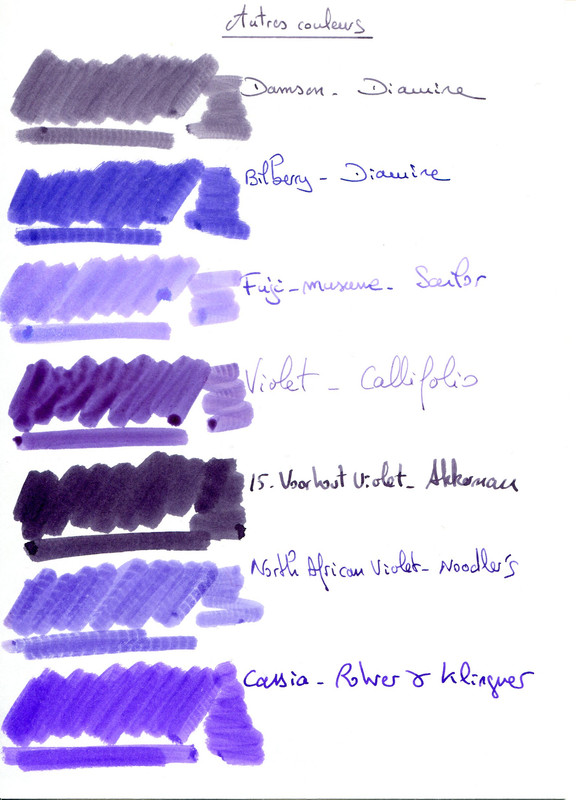 Autres couleurs
Damson - Diamine
Bilberry - Diamine
Fuji-musume - Sailor
Violet - Callifolio
15. Voorhout Violet - Akkerman
North African Violet - Noodler's
Cassia - Rohrer & Klingner